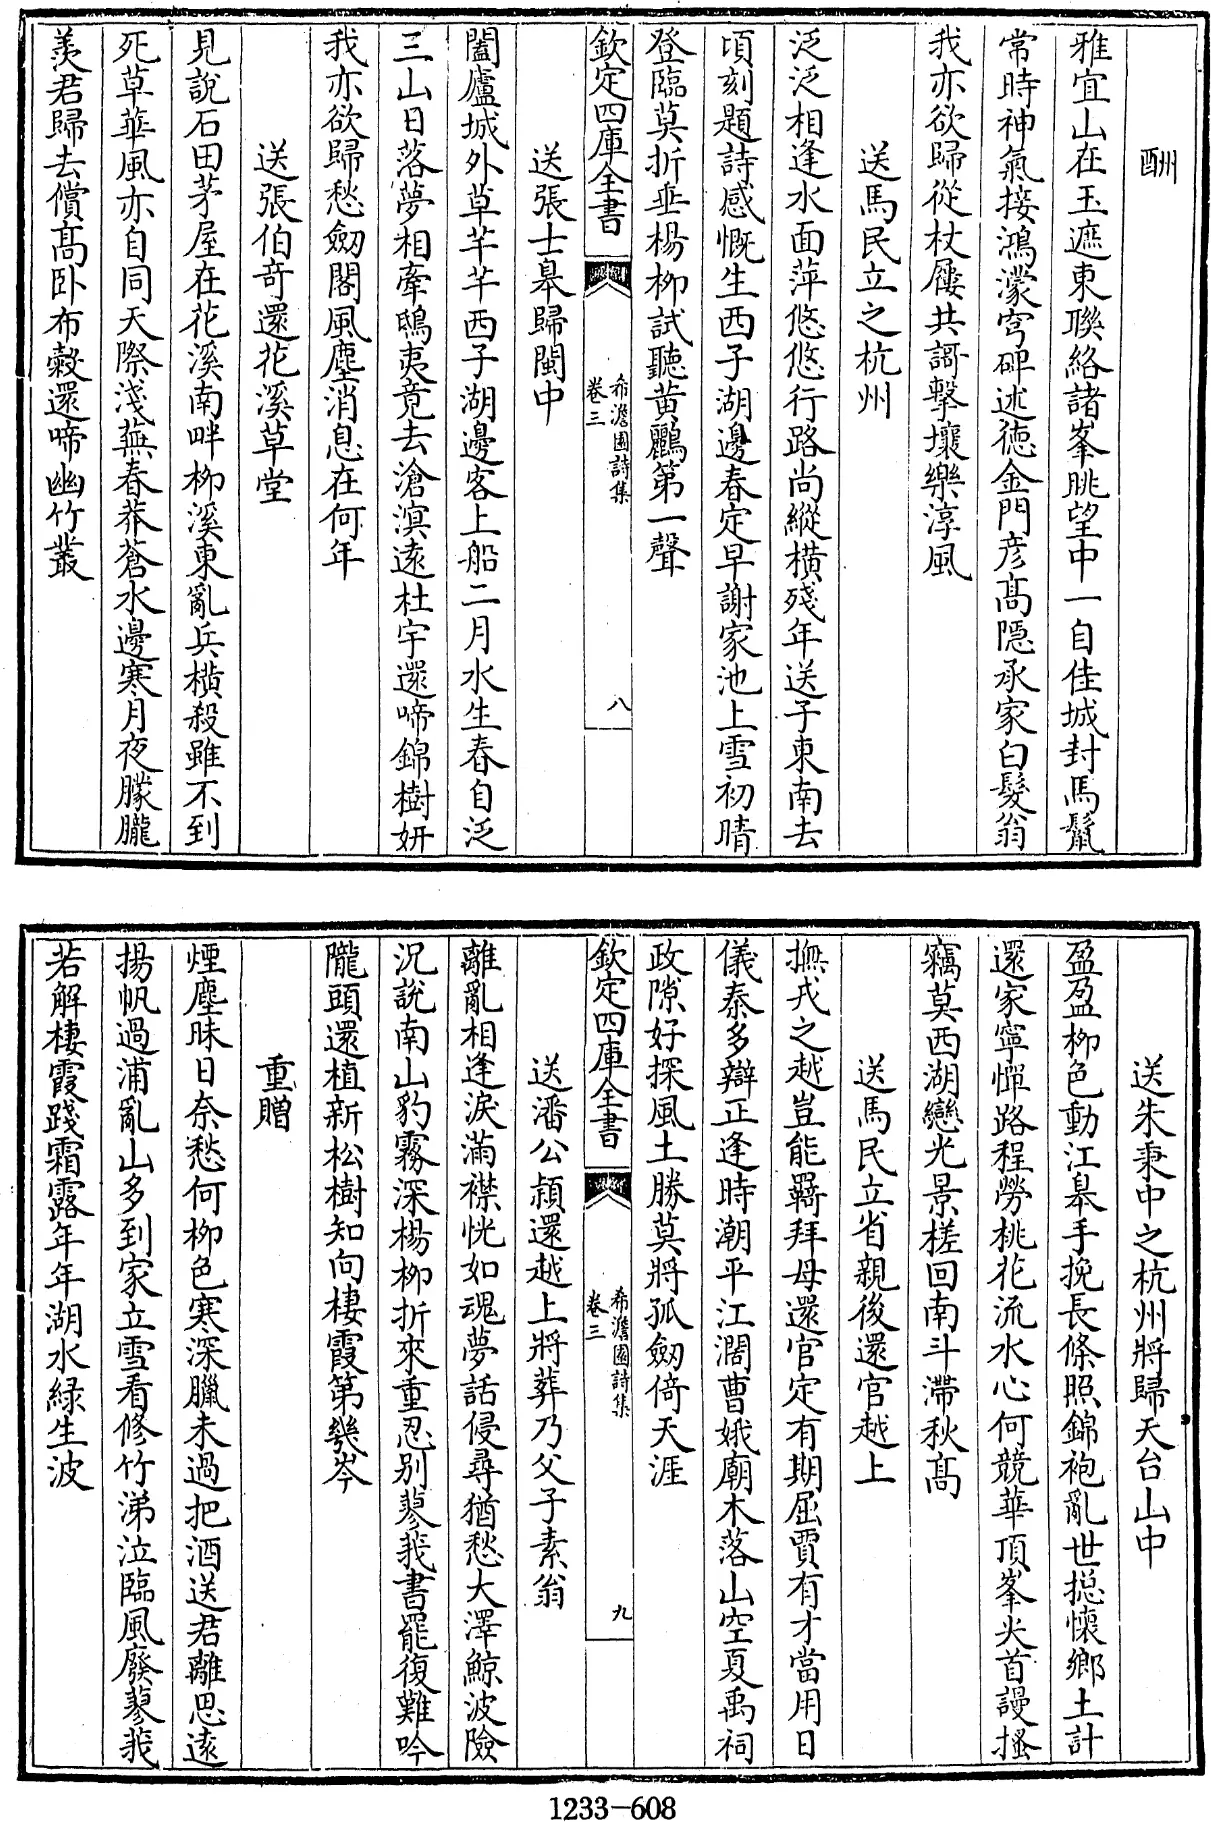 酬
雅宜山在玉遮東聯絡諸峯眺望中一自佳城封馬鬛
常時神氣接鴻濛穹碑述徳金門彦髙隱承家白髮翁
我亦欲歸從杖屨共謌擊壤樂淳風
送馬民立之杭州
泛泛相逢水面萍悠悠行路尚縱橫殘年送子東南去
頃刻題詩感慨生西子湖邊春定早謝家池上雪初晴
登臨莫折垂楊栁試聽黄鸝第一聲
欽定四庫全書
希澹園詩集
卷三
八
送張士皐歸閩中
闔廬城外草芊芊西子湖邊客上船二月水生春自泛
三山日落夢相牽鴟夷竟去滄溟逺杜宇還啼錦樹妍
我亦欲歸愁劒閣風塵消息在何年
送張伯竒還花溪草堂
見說石田茅屋在花溪南畔栁溪東亂兵橫殺雖不到
死草華風亦自同天際淺蕪春莽蒼水邊寒月夜朦朧
羨君歸去償髙卧布穀還啼幽竹叢
送朱秉中之杭州將歸天台山中
盈盈栁色動江皋手挽長條照錦袍亂世揔懐鄉土計
還家寜憚路程勞桃花流水心何競華頂峯尖首謾搔
竊莫西湖戀光景槎回南斗滯秋髙
送馬民立省親後還官越上
撫戎之越豈能羈拜母還官定有期屈賈有才當用日
儀秦多辯正逢時潮平江濶曹娥廟木落山空夏禹祠
政隙好探風土勝莫將孤劒倚天涯
欽定四庫全書
希澹園詩集
卷三
九
送潘公頴還越上將葬乃父子素翁
離亂相逢淚滿襟恍如魂夢話侵尋猶愁大澤鯨波險
況說南山豹霧深楊栁折來重忍别蓼莪書罷復難吟
隴頭還植新松樹知向棲霞第㡬岑
重贈
煙塵昧日奈愁何栁色寒深臘未過把酒送君離思逺
揚帆過浦亂山多到家立雪看修竹涕泣臨風廢蓼莪
若解棲霞踐霜露年年湖水緑生波
1233-608